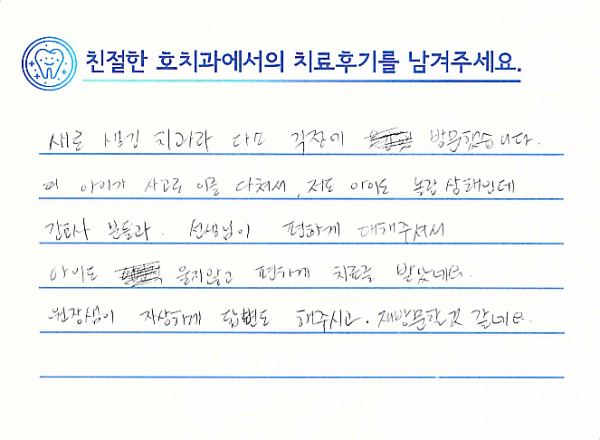 친절한 호치과에서의 치료후기를 남겨주세요.
새로 생긴 치과라 다소 걱정에 방문했습니다.
저희 아이가 사고로 이를 다쳐서, 저도 아이도 놀란 상태인데
간호사 분들과. 선생님이 편하게 대해주셔서
아이도 울지않고 편하게 치료를 받았네요.
원장님이 자상하게 답변도 해주시고. 재방문할것 같네요.